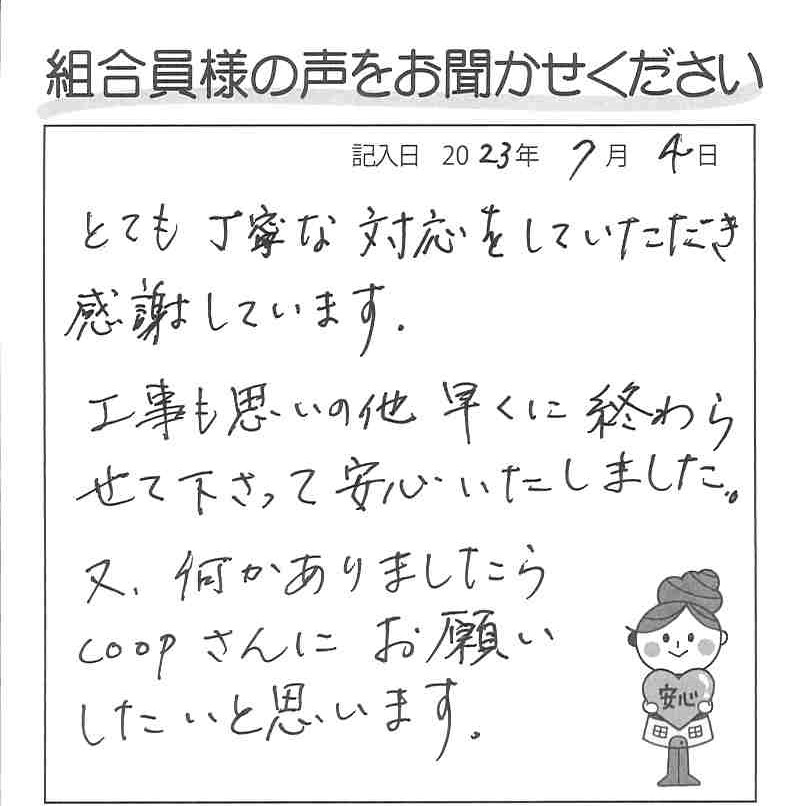 組合員様の声をお聞かせください
記入日 2023年 7月 4日
とても丁寧な対応をしていただき
感謝しています.
工事も思いの他 早くに終わら
せて下さって安心いたしました。
又、何かありましたら
coopさんにお願い
したいと思います。
安心